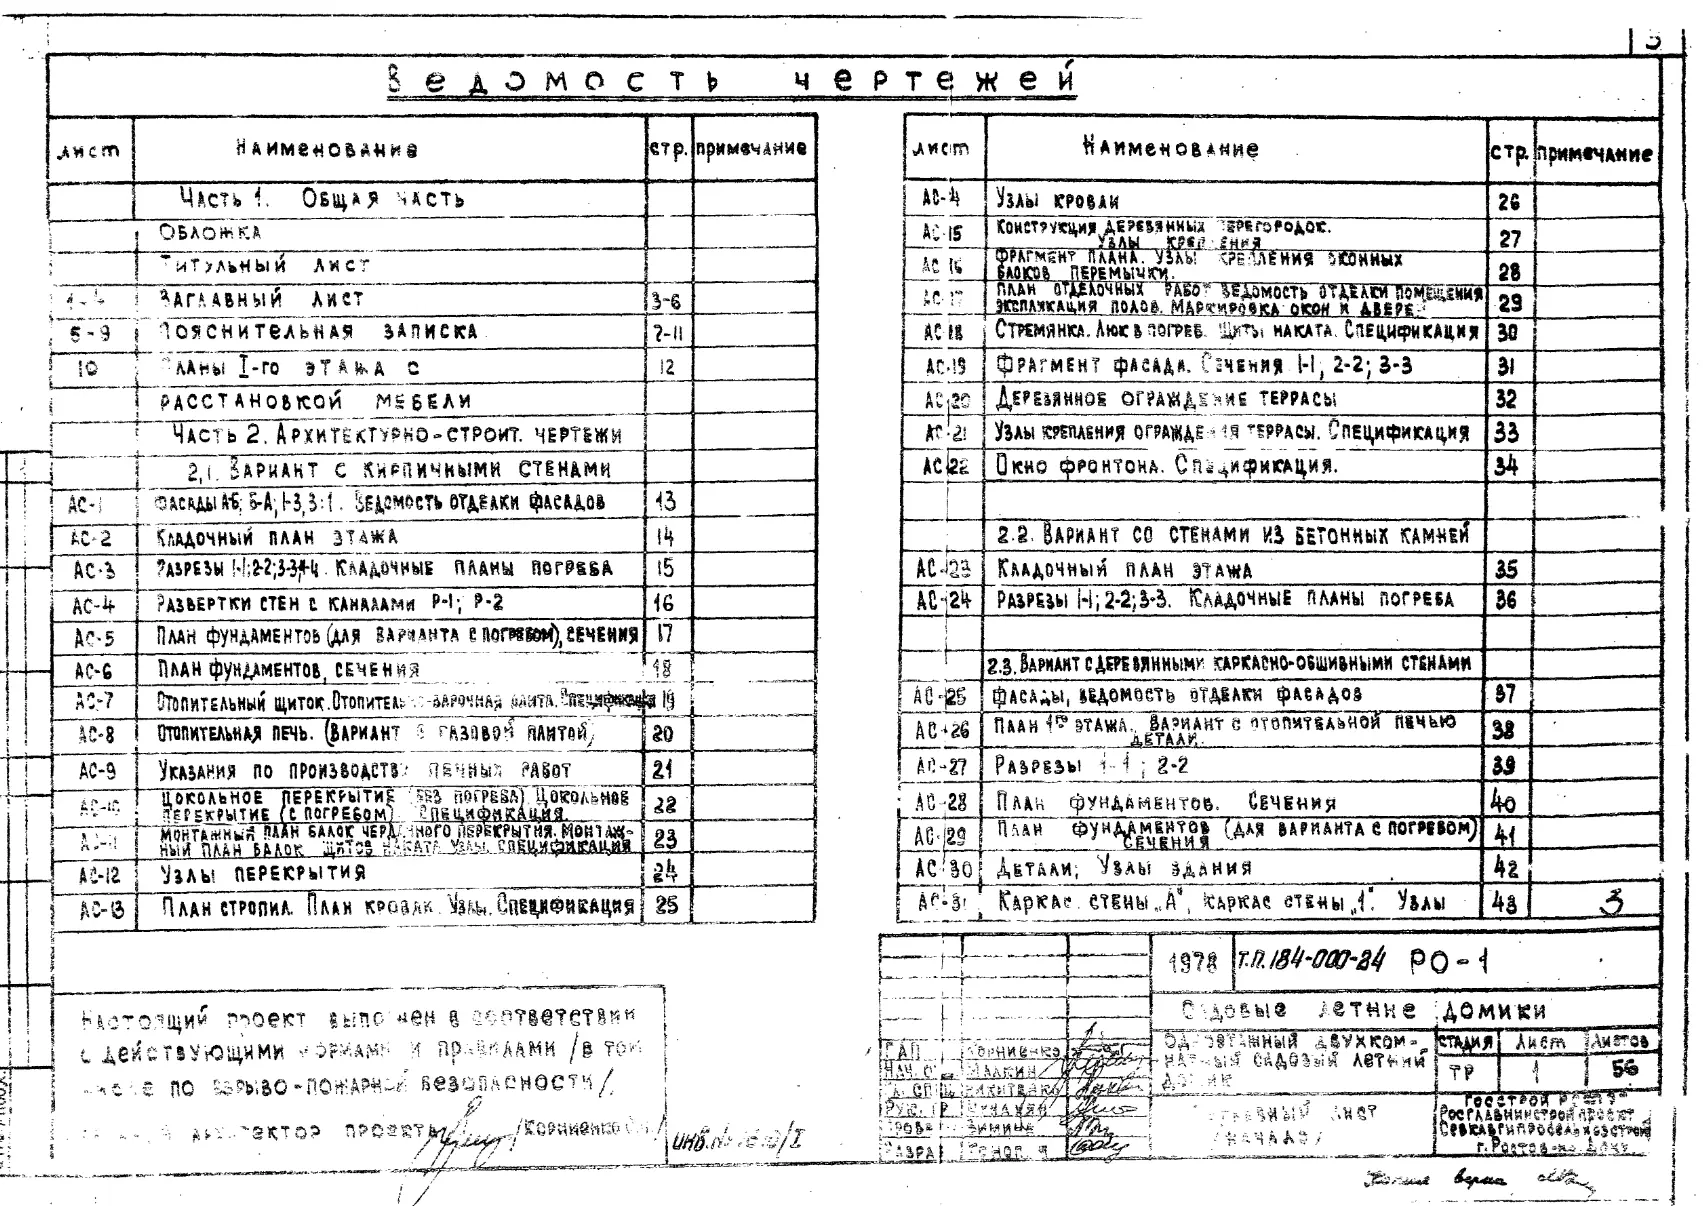 Ведомость чертежей
лист Наименование стр. примечание
Часть 1. Общая часть
Обложка
Титульный лист
1-4 Заглавный лист 3-6
5-9 Пояснительная записка 7-11
10 Планы I-го этажа с 12
расстановкой мебели
Часть 2. Архитектурно-строит. чертежи
2.1. Вариант с кирпичными стенами
АС-1 Фасады А-Б; Б-А; 1-3, 3-1. Ведомость отделки фасадов 13
АС-2 Кладочный план этажа 14
АС-3 Разрезы 1-1; 2-2; 3-3; 4-4. Кладочные планы погреба 15
АС-4 Развертки стен с каналами Р-1; Р-2 16
АС-5 План фундаментов (для варианта с погребом), сечения 17
АС-6 План фундаментов, сечения 18
АС-7 Отопительный щиток. Отопительно-варочная плита. Спецификация 19
АС-8 Отопительная печь. (Вариант с газовой плитой) 20
АС-9 Указания по производству печных работ 21
АС-10 Цокольное перекрытие (без погреба) Цокольное 22
перекрытие (с погребом) Спецификация.
АС-11 Монтажный план балок чердачного перекрытия. Монтаж- 23
ный план балок щитов наката Узлы. Спецификация
АС-12 Узлы перекрытия 24
АС-13 План стропил. План кровли. Узлы. Спецификация 25
лист Наименование стр. примечание
АС-4 Узлы кровли 26
АС-15 Конструкция деревянных перегородок. 27
Узлы крепления
АС-16 Фрагмент плана. Узлы крепления оконных 28
блоков перемычки.
АС-17 План отделочных работ Ведомость отделки помещения 29
экспликация полов. Маркировка окон и дверей
АС-18 Стремянка. Люк в погреб. Щиты наката. Спецификация 30
АС-19 Фрагмент фасада. Сечения 1-1; 2-2; 3-3 31
АС-20 Деревянное ограждение террасы 32
АС-21 Узлы крепления ограждения террасы. Спецификация 33
АС-22 Окно фронтона. Спецификация. 34
2.2. Вариант со стенами из бетонных камней
АС-23 Кладочный план этажа 35
АС-24 Разрезы 1-1; 2-2; 3-3. Кладочные планы погреба 36
2.3. Вариант с деревянными каркасно-обшивными стенами
АС-25 Фасады, ведомость отделки фасадов 37
АС-26 План 1го этажа. Вариант с отопительной печью 38
Детали.
АС-27 Разрезы 1-1; 2-2 39
АС-28 План фундаментов. Сечения 40
АС-29 План фундаментов (для варианта с погребом) 41
Сечения
АС-30 Детали; Узлы здания 42
АС-31 Каркас стены „А", каркас стены „1". Узлы 43 3
Настоящий проект выполнен в соответствии
с действующими нормами и правилами /в том
числе по взрыво-пожарной безопасности/.
архитектор проекта /Корниенко
инв.№
1978 Т.П.184-000-24 РО-1
Садовые летние домики
ГАП Корниенко
Одноэтажный двухком-
натный садовый летний
домик
стадия Лист Листов
ТР 1 56
Заглавный лист
/начало/
Росглавниистройпроект
г. Ростов-на-Дону
Копия верна